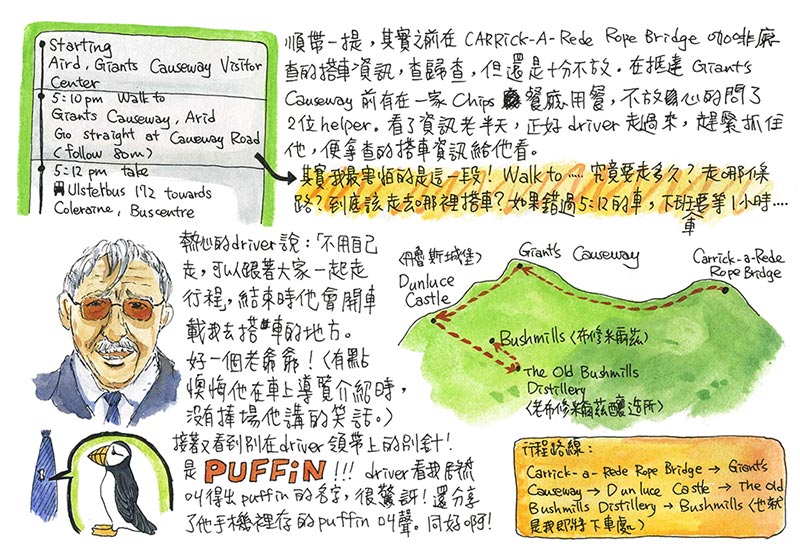 Starting
Aird, Giants Causeway Visitor
Center
5:10pm Walk to
Giants Causeway, Arid
Go straight at Causeway Road
(follow 80m)
5:12 pm take
Ulsterbus 172 towards
Coleraine, Buscentre
順帶一提，其實之前在 CARRick-A-Rede Rope Bridge 咖啡廳
查的搭車資訊，查歸查，但還是十分不放。在抵達 Giant's
Causeway 前有在一家 Chips 餐廳用餐，不放心的問了
2位helper。看了資訊老半天，正好driver走過來，趕緊抓住
他，便拿查的搭車資訊給他看。
其實我最害怕的是這一段！Walk to ..... 究竟要走多久？走哪條
路？到底該走去哪裡搭車？如果錯過5:12的車，下班車要等1小時....
熱心的driver說：「不用自己
走，可以跟著大家一起走
行程，結束時他會開車
載我去搭車的地方。
好一個老爺爺！（有點
懊悔他在車上導覽介紹時，
沒有捧場他講的笑話。）
接著又看到別在driver領帶上的別針！
是 PUFFiN !!! driver看我居然
叫得出puffin的名字，很驚訝！還分享
了他手機裡存的puffin叫聲。同好啊！
〈丹魯斯城堡〉
Dunluce
Castle
Giant's Causeway
Carrick-a-Rede
Rope Bridge
Bushmills〈布修米爾茲〉
The Old Bushmills
Distillery
〈老布修米爾茲釀造所〉
行程路線：
Carrick-a-Rede Rope Bridge → Giant's
Causeway → Dunluce Castle → The Old
Bushmills Distillery → Bushmills〈也就
是我即將下車處〉